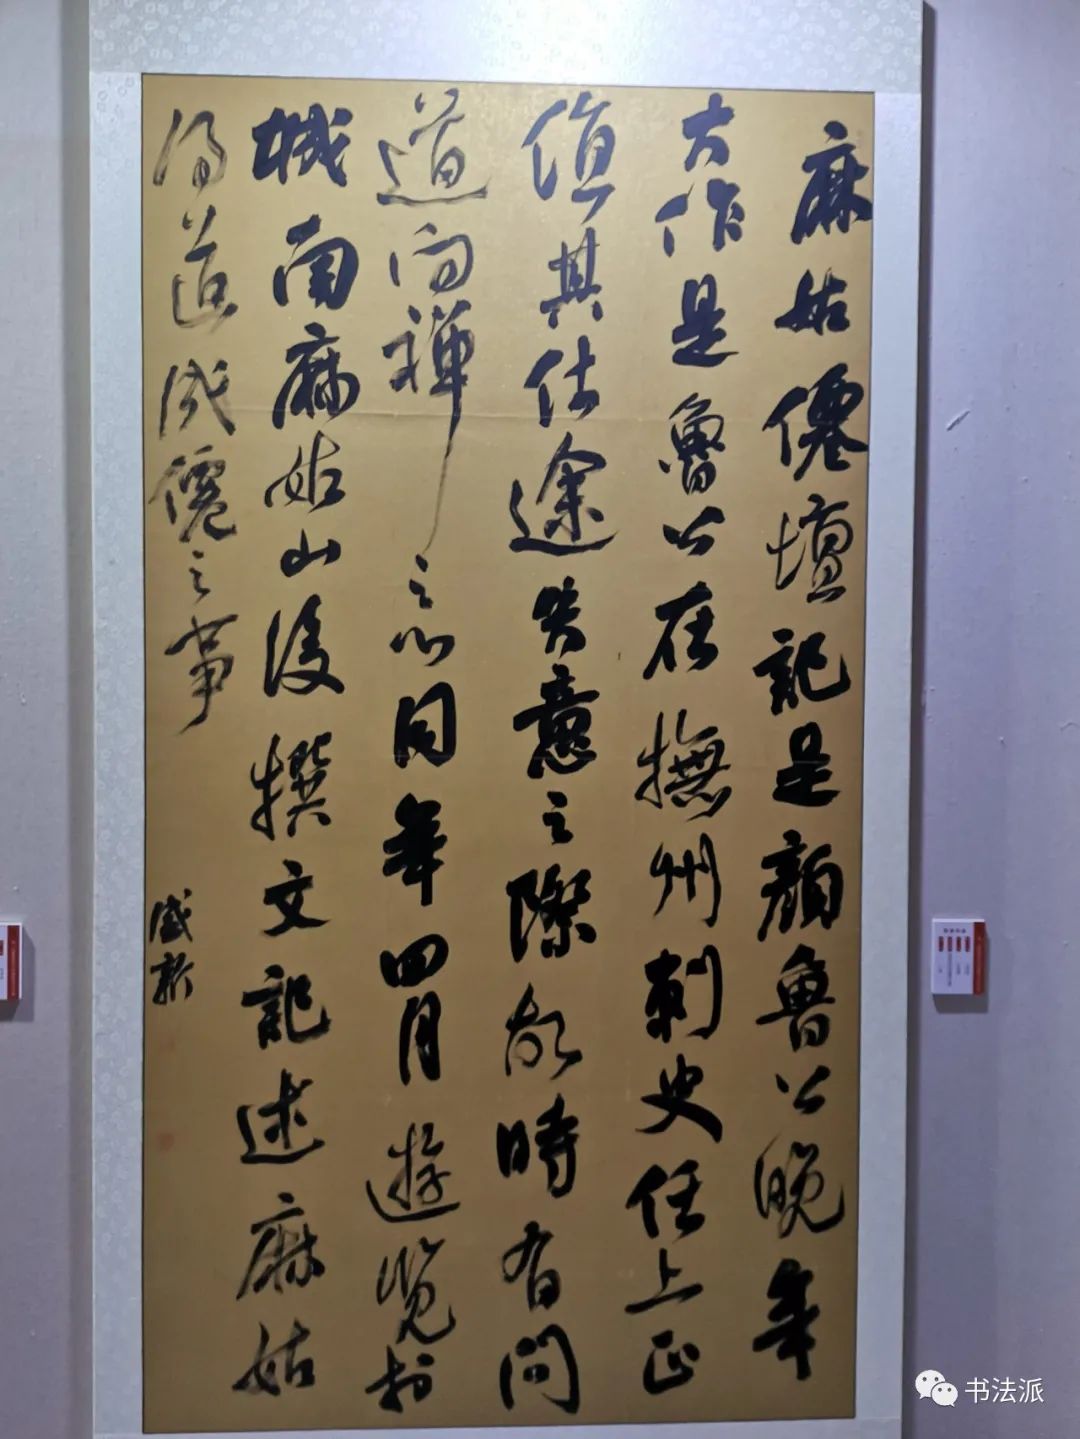 麻姑僊壇記是顔魯公晚年
大作是魯公在撫州刺史任上正
值其仕途失意之際故時有問
道向禪之心同年四月遊覽於
城南麻姑山後撰文記述麻姑
得道成僊之事
盛新
书法派